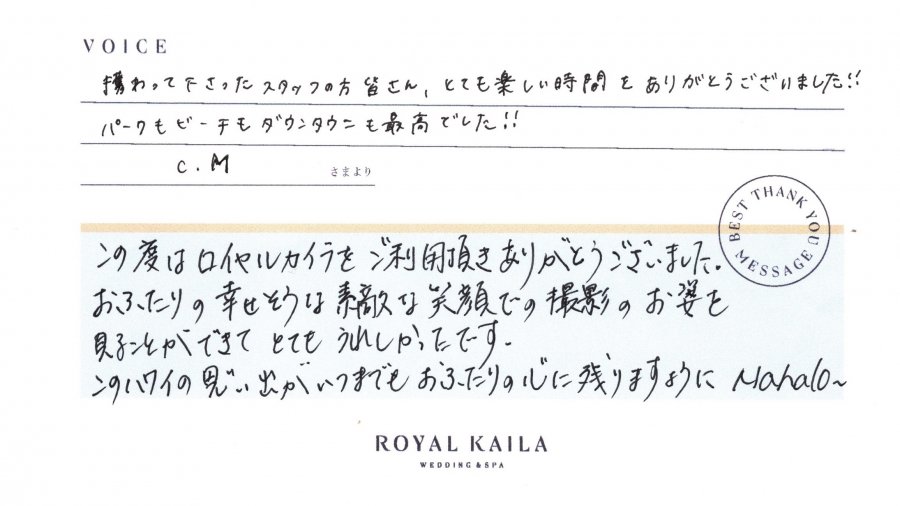 VOICE
携わって下さったスタッフの方皆さん、とても楽しい時間をありがとうございました!!
パークもビーチもダウンタウンも最高でした!!
C.M さまより
BEST THANK YOU MESSAGE
この度はロイヤルカイラをご利用頂きありがとうございました。
おふたりの幸せそうな素敵な笑顔での撮影のお姿を
見ることができてとてもうれしかったです。
このハワイの思い出がいつまでもおふたりの心に残りますように Mahalo~
ROYAL KAILA
WEDDING & SPA